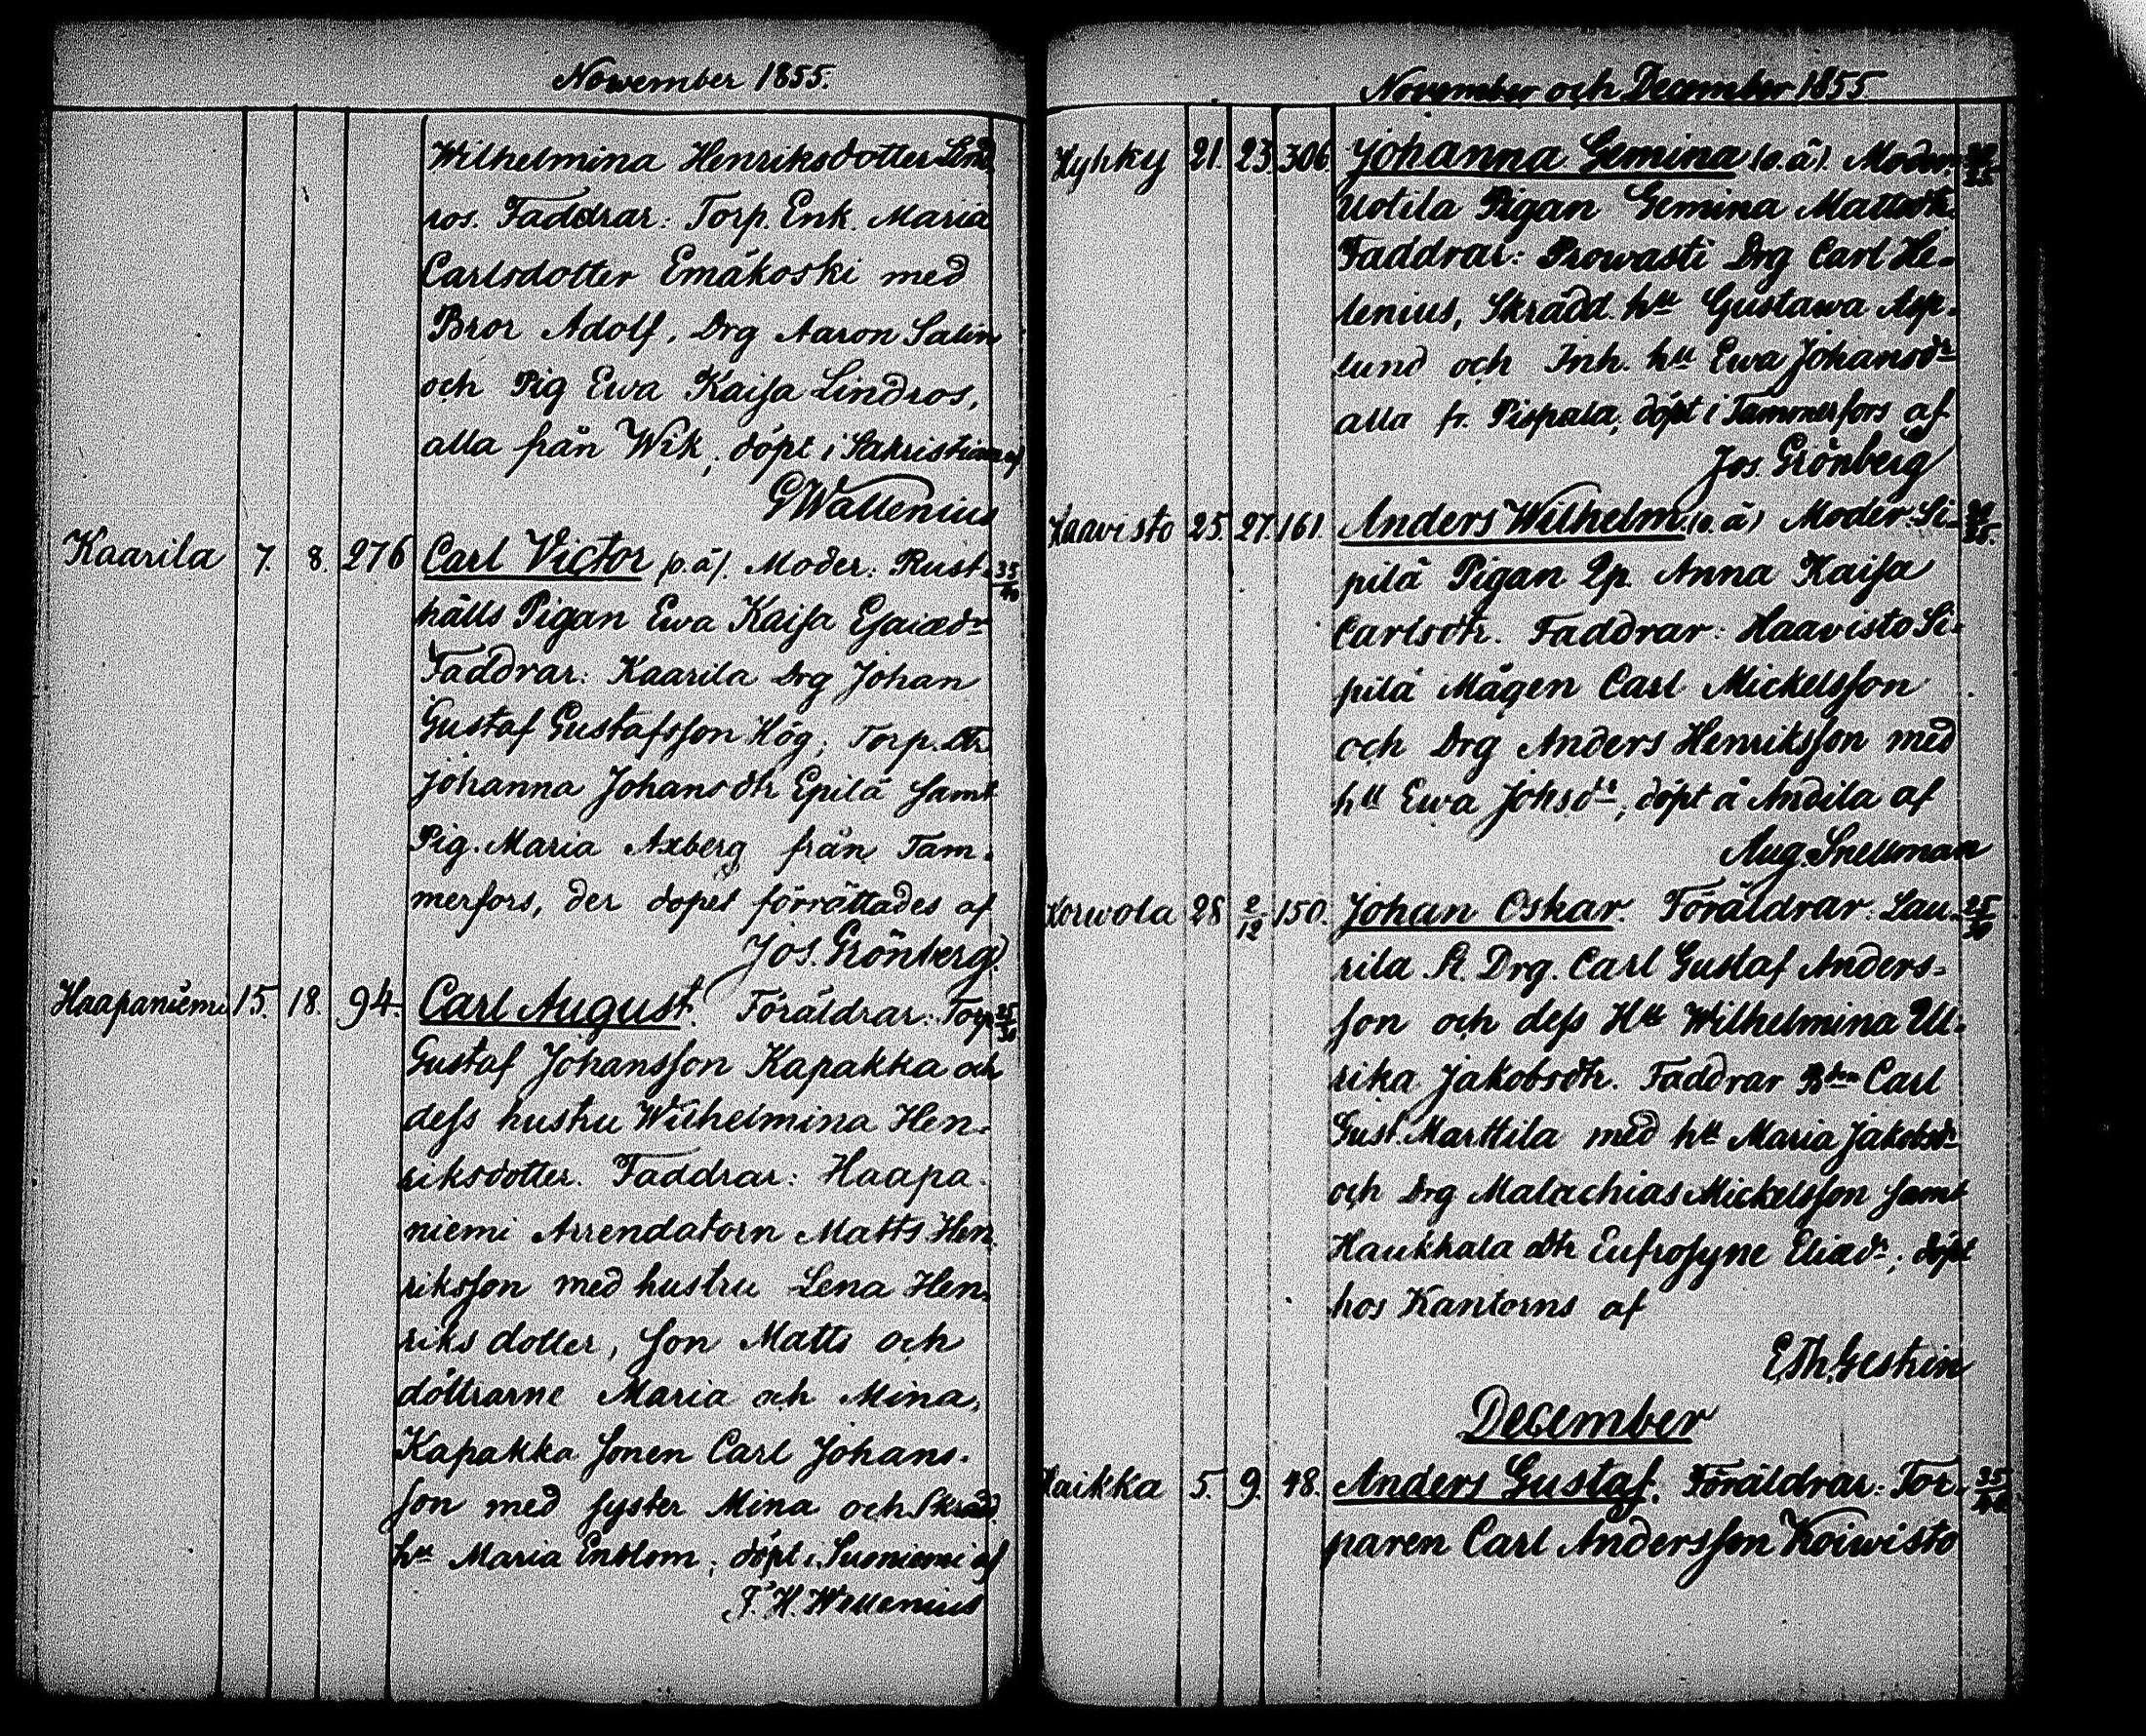 Nowember 1855.
Wilhelmina Henriksdotter Lind
ros. Faddrar: Torp. Enk. Maria
Carlsdotter Emäkoski med
Bror Adolf, Drg Aaron Salin
och Pig Ewa Kaisa Lindros,
alla från Wik, döpt i Sakristian af
GWallenius
Kaarila 7. 8. 276 Carl Victor (o.ä). Moder: Rust- 35/40
hålls Pigan Ewa Kaisa Esaiædr
Faddrar: Kaarila Drg Johan
Gustaf Gustafsson Hög; Torp. Dtr
Johanna Johansdtr Epilä samt
Pig. Maria Axberg från Tam-
merfors, der dopet förrättades af
Jos. Grönberg.
Haapaniemi 15. 18. 94. Carl August. Föräldrar: Torp 25/30
Gustaf Johansson Kapakka och
dess hustru Wilhelmina Hen-
riksdotter. Faddrar: Haapa-
niemi Arrendatorn Matts Hen-
riksson med hustru Lena Hen-
riksdotter, son Matts och
döttrarne Maria och Mina,
Kapakka sonen Carl Johans-
son med syster Mina och Skrädd.
hu Maria Enblom; döpt i Suoniemi af
F. H. Wallenius
November och December 1855
Hyhky 21. 23. 306. Johanna Gemina (o.ä). Moder:
Uotila Pigan Gemina Mattsdtr.
Faddrar: Prowasti Drg Carl He-
lenius, Skrädd. hu Gustawa Asp-
lund och Inh. hu Ewa Johansdr
alla fr. Pispala, döpt i Tammerfors af
Jos. Grönberg
Haavisto 25. 27. 161. Anders Wilhelm (o.ä) Moder: Si-
pilä Pigan Lp. Anna Kaisa
Carlsdtr. Faddrar: Haavisto Si-
pilä Mågen Carl Mickelsson
och Drg Anders Henriksson med
hu Ewa Johsdr, döpt å Andila af
Aug. Snellman
Korwola 28 2/12 150. Johan Oskar. Föräldrar: Lau- 25/30
rila St. Drg. Carl Gustaf Anders-
son och dess Hu Wilhelmina Ul-
rika Jakobsdtr. Faddrar Bden Carl
Gust. Marttila med hu Maria Jakobsdr
och Drg Malachias Mickelsson samt
Haukkala dtr Eufrosyne Eliædr; döpt
hos Kantorns af
E.Th. Gestrin
December
Haikka 5. 9. 48. Anders Gustaf. Föräldrar: Tor- 35/40
paren Carl Andersson Koiwisto